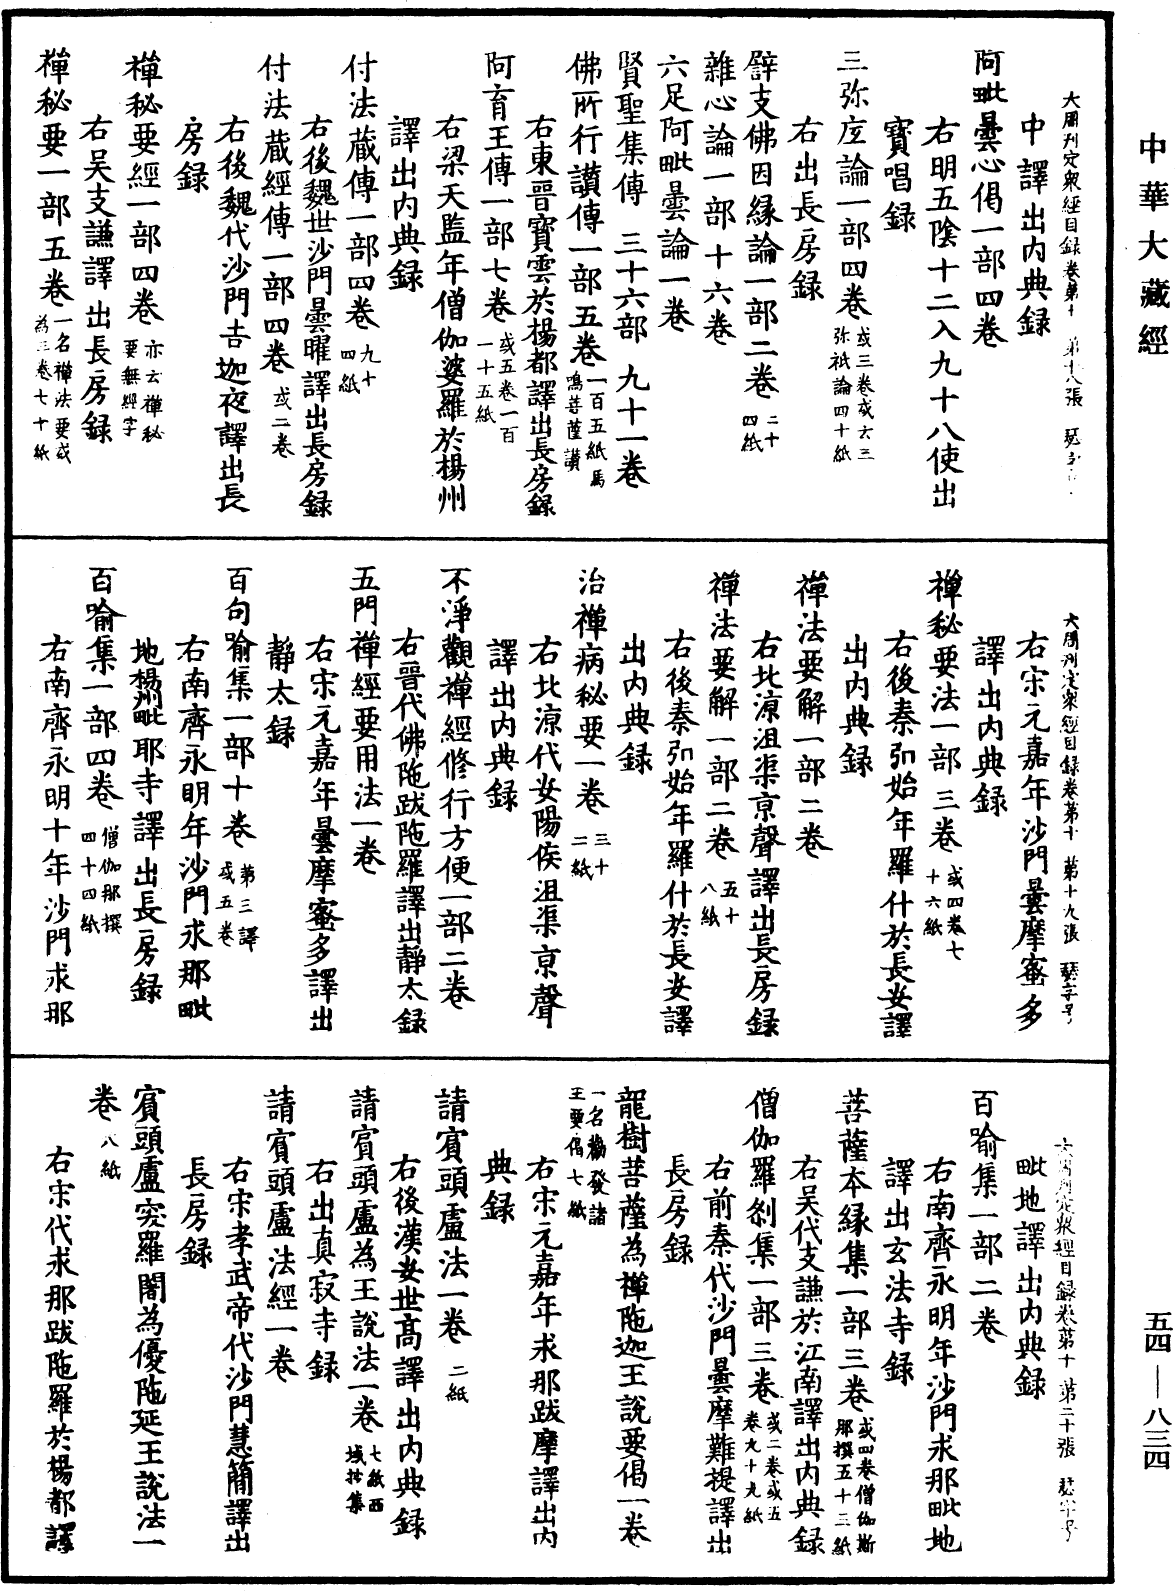 中華大藏經
大周刊定衆經目録卷第十　第十八張
中譯出内典録
阿毗曇心偈一部四卷
右明五陰十二入九十八使出
寶唱録
三弥底論一部四卷 或三卷或云三弥祇論四十紙
右出長房録
辟支佛因縁論一部二卷 二十四紙
雜心論一部十六卷
六足阿毗曇論一卷
賢聖集傳　三十六部　九十一卷
佛所行讃傳一部五卷 一百五紙馬鳴菩薩讃
右東晉寶雲於楊都譯出長房録
阿育王傳一部七卷 或五卷一百一十五紙
右梁天監年僧伽婆羅於楊州
譯出内典録
付法蔵傳一部四卷 九十四紙
右後魏世沙門曇曜譯出長房録
付法蔵經傳一部四卷 或二卷
右後魏代沙門吉迦夜譯出長
房録
禅秘要經一部四卷 亦云禅秘要無經字
右吴支謙譯出長房録
禅秘要一部五卷 一名禅法要或為三卷七十紙
大周刊定衆經目録卷第十　第十九張
右宋元嘉年沙門曇摩蜜多
譯出内典録
禅秘要法一部三卷 或四卷七十六紙
右後秦弘始年羅什於長安譯
出内典録
禅法要解一部二卷
右北涼沮渠京聲譯出長房録
禅法要解一部二卷 五十八紙
右後秦弘始年羅什於長安譯
出内典録
治禅病秘要一卷 三十二紙
右北涼代安陽侯沮渠京聲
譯出内典録
不淨觀禅經修行方便一部二卷
右晉代佛陁跋陁羅譯出靜太録
五門禅經要用法一卷
右宋元嘉年曇摩蜜多譯出
靜太録
百句喻集一部十卷 第三譯或五卷
右南齊永明年沙門求那毗
地楊州毗耶寺譯出長房録
百喻集一部四卷 僧伽那撰四十四紙
右南齊永明十年沙門求那
大周刊定衆經目録卷第十　第二十張
毗地譯出内典録
百喻集一部二卷
右南齊永明年沙門求那毗地
譯出玄法寺録
菩薩本縁集一部三卷 或四卷僧伽斯那撰五十三紙
右吴代支謙於江南譯出内典録
僧伽羅刹集一部三卷 或二卷或五卷九十九紙
右前秦代沙門曇摩難提譯出
長房録
龍樹菩薩為禅陁迦王說要偈一卷
一名勸發諸王要偈七紙
右宋元嘉年求那跋摩譯出内
典録
請賓頭盧法一卷 二紙
右後漢安世髙譯出内典録
請賓頭盧為王說法一卷 七紙西域抄集
右出真寂寺録
請賓頭盧法經一卷
右宋孝武帝代沙門慧簡譯出
長房録
賓頭盧突羅闍為優陁延王說法一
卷 八紙
右宋代求那跋陁羅於楊都譯
五四—八三四